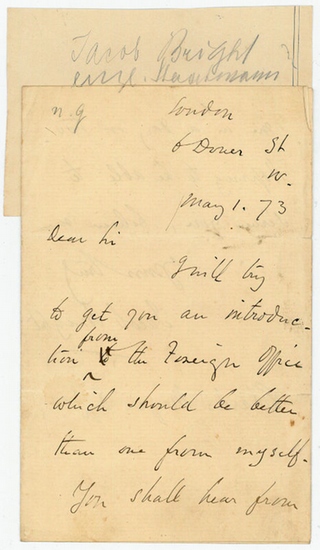 Jacob Bright
engl. Staatsmann
n.g
London
6 Dover St
W.
May 1. 73
Dear Sir
I will try
to get you an introduc-
tion from the Foreign Office
which should be better
than one from myself.
You shall hear from